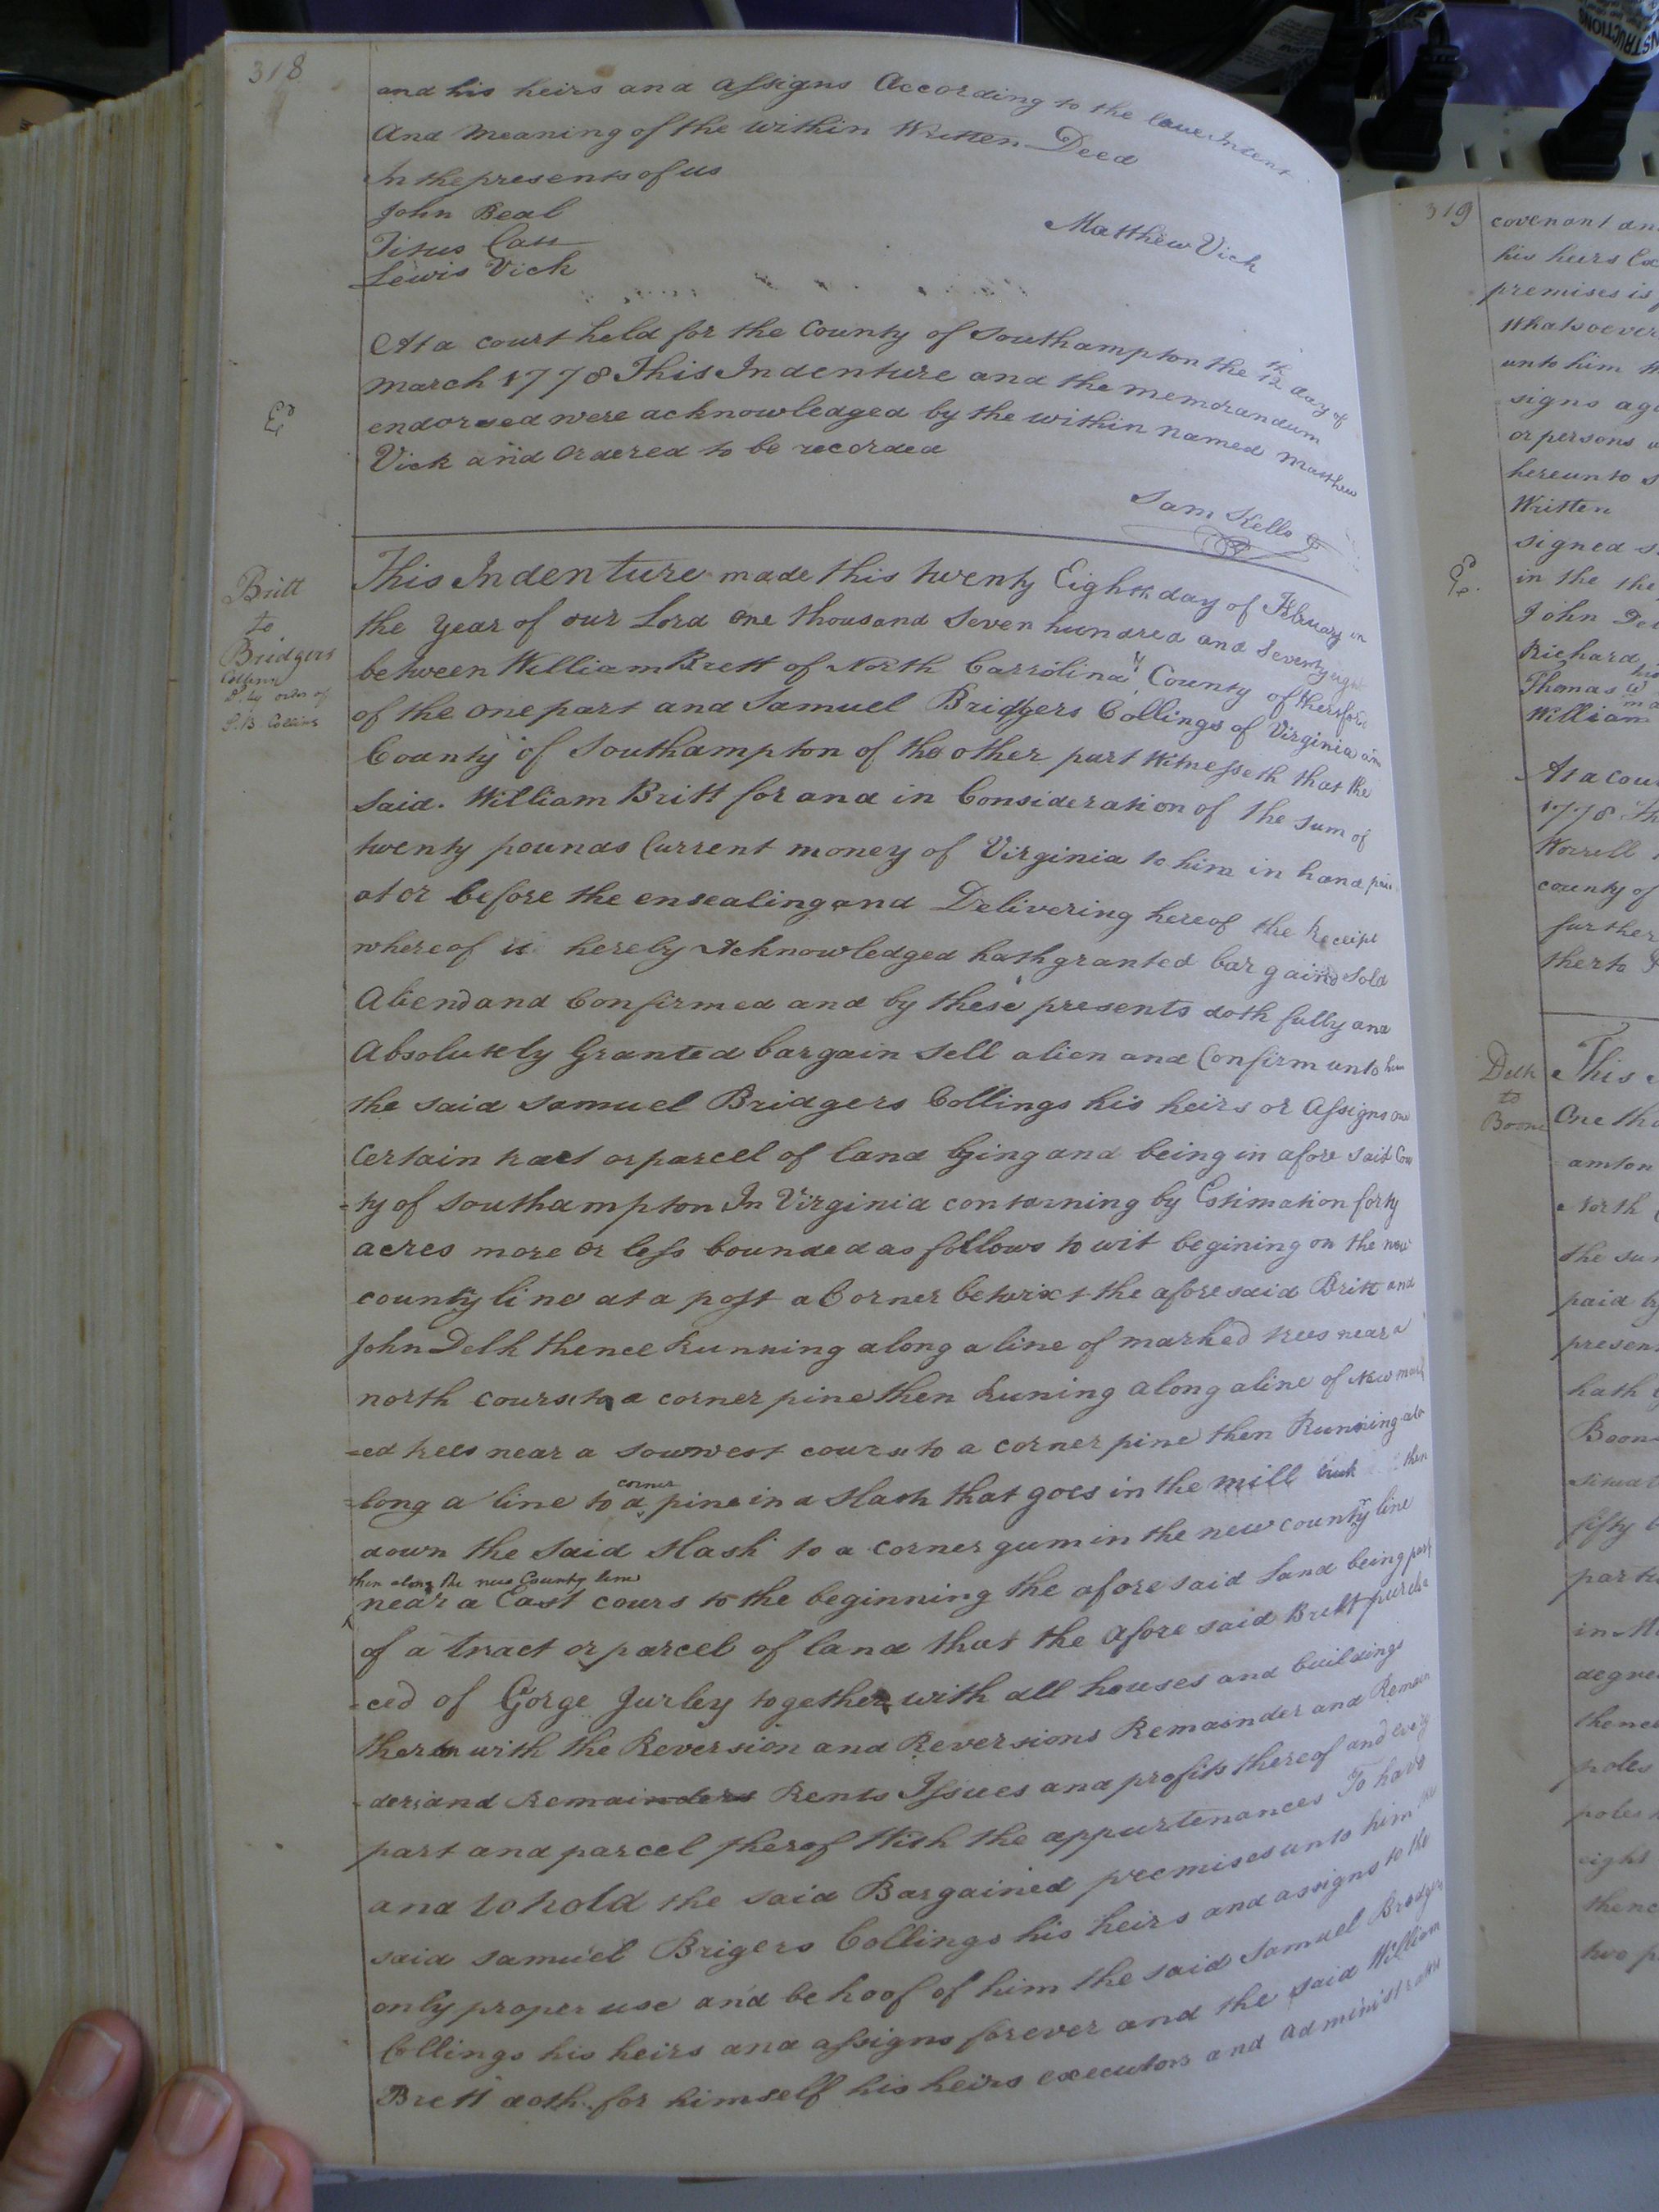 318
and his heirs and assigns According to the true Intent
And Meaning of the within Written Deed
In the presents of us
John Beal
Titus Carr
Lewis Vick
Matthew Vick
At a court held for the County of Southampton the 12th day of
March 1778 This Indenture and the memorandum
endorsed were acknowledged by the within named Matthew
Vick and Ordered to be recorded
Ed
Sam Kello
Britt
to
Bridgers
Collins
Dd. by order of
S. B. Collins
This Indenture made this twenty Eighth day of February in
the Year of our Lord One thousand Seven hundred and Seventy eight
between William Brett of North Carrolina & County of Hertford
of the one part and Samuel Bridgers Collings of Virginia an
County of Southampton of the other part Witnesseth that the
said William Britt for and in Consideration of the sum of
twenty pounds Current money of Virginia to him in hand pai
at or before the ensealing and Delivering hereof the Receipt
whereof is hereby Acknowledged hath granted bargaind sold
Aliend and Confirmed and by these presents doth fully and
Absolutely Granted bargain sell alien and Confirm unto him
the said Samuel Bridgers Collings his heirs or Assigns one
Certain tract or parcel of land lying and being in afore said Cou
-ty of Southampton In Virginia contarning by Estimation forty
acres more or less bounded as follows to wit begining on the new
county line at a post a Corner betwixt the afore said Britt and
John Delk thence Running along a line of marked trees near a
north cours to a corner pine then Runing along a line of New mark
-ed trees near a souwest cours to a corner pine then Running a
-long a line to a corner pine in a slash that goes in the mill then
down the said slash to a corner gum in the new county line
then along the new County line
near a East cours to the beginning the afore said Land being part
of a tract or parcel of land that the afore said Britt purcha
-ced of Gorge Gurley together with all houses and buildings
theron with the Reversion and Reversions Remainder and Remain
-ders and Remainders Rents Issues and profits thereof and every
part and parcel therof With the appurtenances To have
and to hold the said Bargained premises unto him the
said Samuel Brigers Collings his heirs and assigns to the
only proper use and behoof of him the said Samuel Bredgers
Collings his heirs and assigns forever and the said William
Brett doth for himself his heirs executors and administrators
319
covenant an
his heirs Ex
premises is
Whatsoever
unto him th
signs aga
or persons
hereunto s
Written
signed s
in the the
John De
Richard
Thomas W
William
At a cour
1778 Th
Worrell
county of
further
therto
Delk
to
Boone
This
One tho
amton
North
the sum
paid by
presen
hath
Boon
situat
fifty
part
in M
degre
thence
poles
poles
eight
thenc
two p